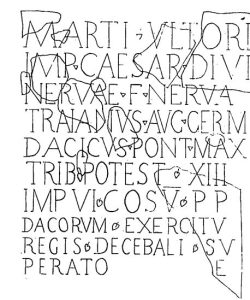 MARTI · VLTORI
IMP · CAESAR · DIVI
NERVAE · F · NERVA
TRAIANVS · AVG · GERM
DACICVS · PONT · MAX
TRIB · POTEST · XIII
IMP VI COS V P P
DACORVM · EXERCITV
REGIS · DECEBALI · SV
PERATO E